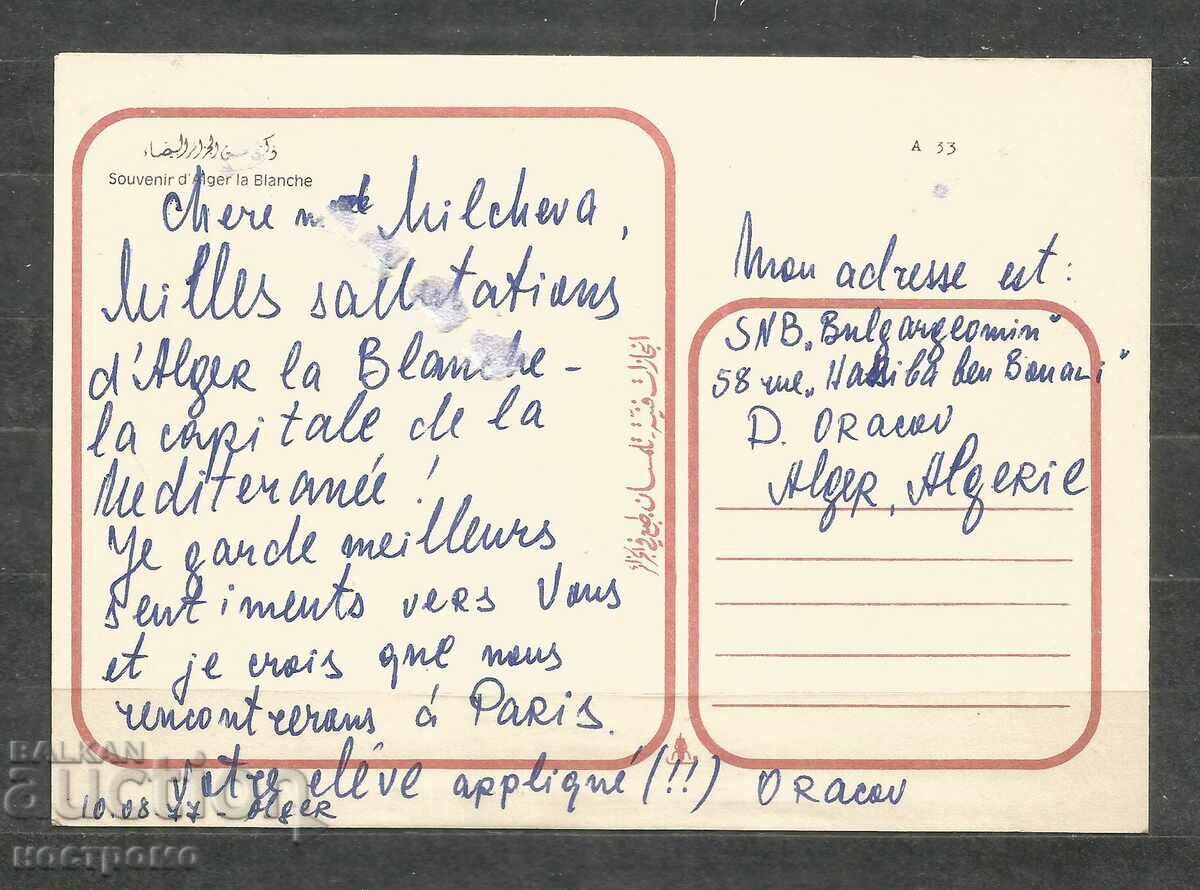 ذكرى من الجزائر البيضاء
Souvenir d'Alger la Blanche
A 33
Chere mde Milcheva,
Milles salutations
d'Alger la Blanche -
la capitale de la
Mediteranée!
Je garde meilleurs
sentiments vers Vous
et je crois que nous
rencontrerons à Paris.
Votre elève appliqué (!!) ORACOV
10.08.77 - Alger
Mon adresse est:
SNB „Bulgargeomin"
58 rue „Hasiba ben Bouali"
D. ORACOV
Alger, Algerie
BALKAN
auction
костромо